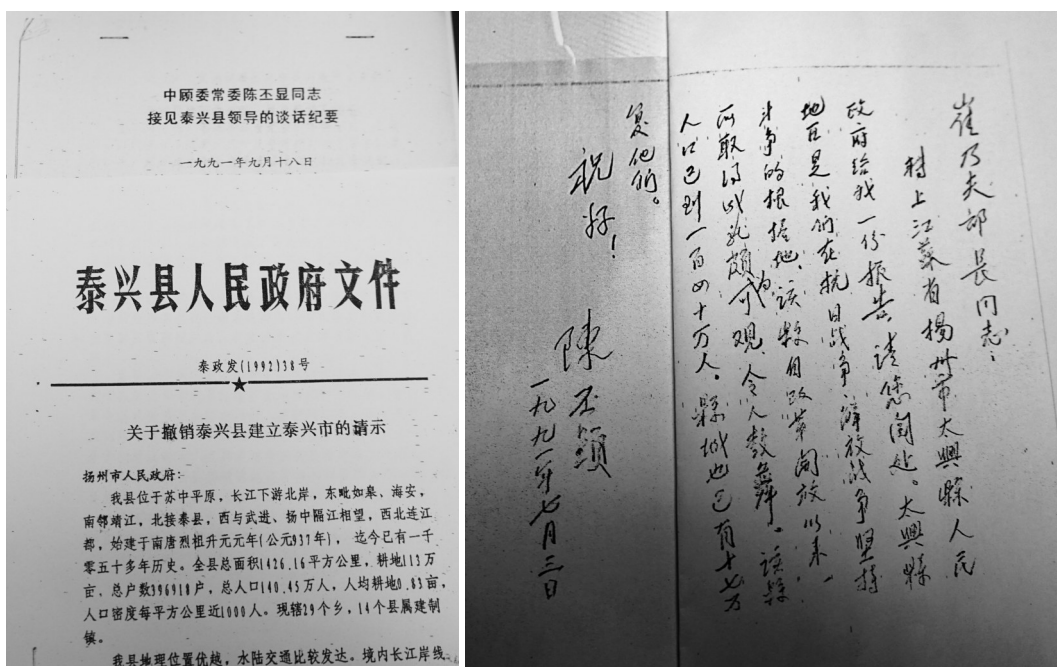 中顾委常委陈丕显同志
接见泰兴县领导的谈话纪要
一九九一年九月十八日
泰兴县人民政府文件
泰政发(1992)38号
关于撤销泰兴县建立泰兴市的请示
扬州市人民政府:
我县位于苏中平原,长江下游北岸,东毗如皋、海安,
南邻靖江,北接泰县,西与武进、扬中隔江相望,西北连江
都,始建于南唐烈祖升元元年(公元937年),迄今已有一千
零五十多年历史。全县总面积1426.16平方公里,耕地113万
亩、总户数396918户,总人口140.45万人,人均耕地0.83亩,
人口密度每平方公里近1000人。现辖29个乡,14个县属建制
镇。
我县地理位置优越,水陆交通比较发达。境内长江岸线
崔乃夫部长同志:
转上江苏省扬州市太兴縣人民
政府给我一份报告,请您阅处。太兴縣
地区是我们在抗日战争、解放战争坚持
斗争的根据地,该县自改革开放以来,
所取得成就颇为可观,令人鼓舞。该縣
人口已到一百四十万人。縣城也已有十七万
复他们。
祝好!
陳丕顯
一九九一年七月三日